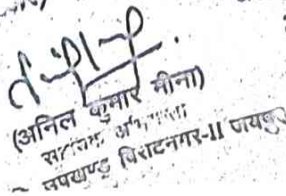 (अनिल कुमार मीना)
सहायक अभियन्ता
उपखण्ड विराटनगर-II जयपुर